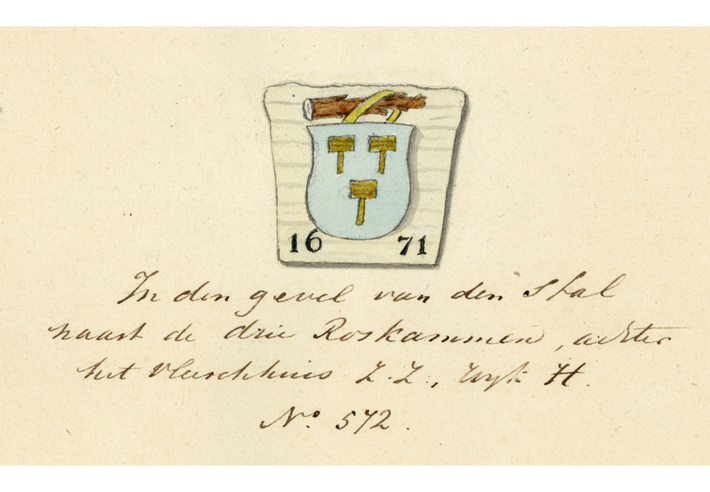 16 71
In den gevel van den Stal
naast de drie Roskammen, achter
het Vleeschhuis Z. Z., Wyk H.
No. 572.